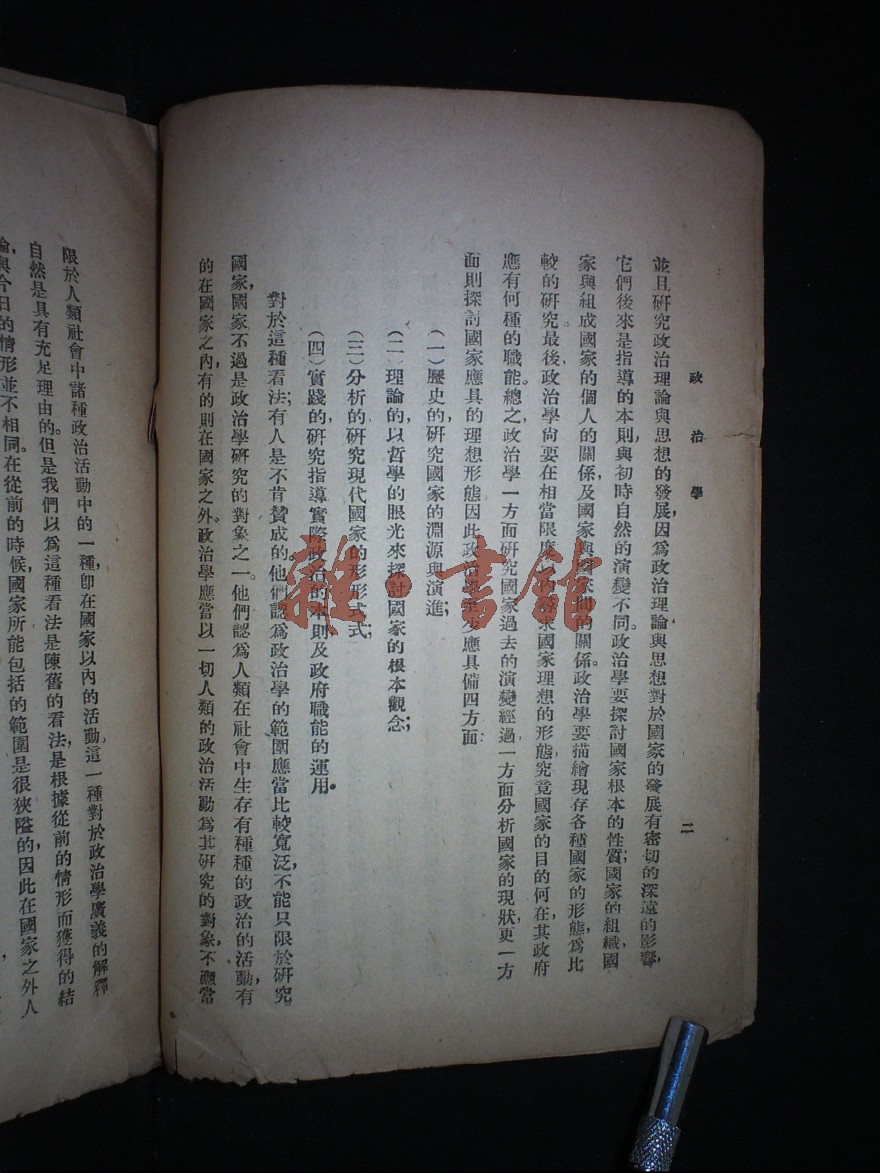 政治學
二
並且研究政治理論與思想的發展,因爲政治理論與思想對於國家的發展有密切的深遠的影響,
它們後來是指導的本則與初時自然的演變不同。政治學要探討國家根本的性質;國家的組織國
家與組成國家的個人的關係,及國家與國家間的關係。政治學要描繪現存各種國家的形態,爲比
較的研究。最後,政治學尙要在相當限度之內尋求國家理想的形態,究竟國家的目的何在,其政府
應有何種的職能。總之,政治學一方面研究國家過去的演變經過,一方面分析國家的現狀,更一方
面則探討國家應具的理想形態因此政治學至少應具備四方面:
(一)歷史的,研究國家的淵源與演進;
(二)理論的,以哲學的眼光來探討國家的根本觀念;
(三)分析的,研究現代國家的形形式式;
(四)實踐的,研究指導實際政治的本則及政府職能的運用。
對於這種看法,有人是不肯贊成的。他們認爲政治學的範圍應當比較寬泛,不能只限於研究
國家,國家不過是政治學研究的對象之一。他們認爲人類在社會中生存有種種的政治的活動,有
的在國家之內,有的則在國家之外。政治學應當以一切人類的政治活動爲其研究的對象,不應當
限於人類社會中諸種政治活動中的一種,卽在國家以內的活動。這一種對於政治學廣義的解釋
自然是具有充足理由的。但是我們以爲這種看法是陳舊的看法,是根據從前的情形而獲得的結
論,與今日的情形並不相同。在從前的時候,國家所能包括的範圍是很狹隘的,因此在國家之外人
雜·書館